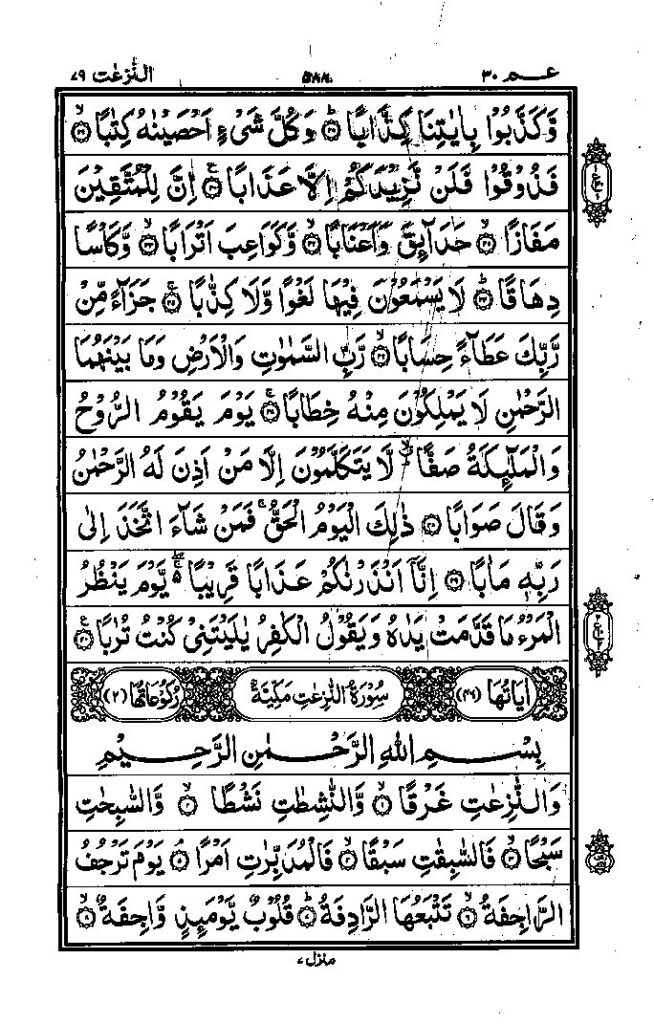 عـم ٣٠ ٥٨٨ النّٰزعٰت ٧٩
وَّكَذَّبُوْا بِاٰيٰتِنَا كِذَّابًا ۝٢٨ وَكُلَّ شَىْءٍ اَحْصَيْنٰهُ كِتٰبًا ۝٢٩
فَذُوْقُوْا فَلَنْ نَّزِيْدَكُمْ اِلَّا عَذَابًا ۝٣٠ اِنَّ لِلْمُتَّقِيْنَ
مَفَازًا ۝٣١ حَدَآئِقَ وَاَعْنَابًا ۝٣٢ وَّكَوَاعِبَ اَتْرَابًا ۝٣٣ وَّكَاْسًا
دِهَاقًا ۝٣٤ لَا يَسْمَعُوْنَ فِيْهَا لَغْوًا وَّلَا كِذّٰبًا ۝٣٥ جَزَآءً مِّنْ
رَّبِّكَ عَطَآءً حِسَابًا ۝٣٦ رَّبِّ السَّمٰوٰتِ وَالْاَرْضِ وَمَا بَيْنَهُمَا
الرَّحْمٰنِ لَا يَمْلِكُوْنَ مِنْهُ خِطَابًا ۝٣٧ يَوْمَ يَقُوْمُ الرُّوْحُ
وَالْمَلٰٓئِكَةُ صَفًّا لَّا يَتَكَلَّمُوْنَ اِلَّا مَنْ اَذِنَ لَهُ الرَّحْمٰنُ
وَقَالَ صَوَابًا ۝٣٨ ذٰلِكَ الْيَوْمُ الْحَقُّ ۚ فَمَنْ شَآءَ اتَّخَذَ اِلٰى
رَبِّهٖ مَاٰبًا ۝٣٩ اِنَّآ اَنْذَرْنٰكُمْ عَذَابًا قَرِيْبًا ۚ يَّوْمَ يَنْظُرُ
الْمَرْءُ مَا قَدَّمَتْ يَدٰهُ وَيَقُوْلُ الْكٰفِرُ يٰلَيْتَنِىْ كُنْتُ تُرٰبًا ۝٤٠
اٰيَاتُهَا (٤٦) سُوْرَةُ النّٰزِعٰتِ مَكِّيَّةٌ رُكُوْعَاتُهَا (٢)
بِسْمِ اللهِ الرَّحْمٰنِ الرَّحِيْمِ
وَالنّٰزِعٰتِ غَرْقًا ۝١ وَّالنّٰشِطٰتِ نَشْطًا ۝٢ وَّالسّٰبِحٰتِ
سَبْحًا ۝٣ فَالسّٰبِقٰتِ سَبْقًا ۝٤ فَالْمُدَبِّرٰتِ اَمْرًا ۝٥ يَوْمَ تَرْجُفُ
الرَّاجِفَةُ ۝٦ تَتْبَعُهَا الرَّادِفَةُ ۝٧ قُلُوْبٌ يَّوْمَئِذٍ وَّاجِفَةٌ ۝٨
منزل ٧